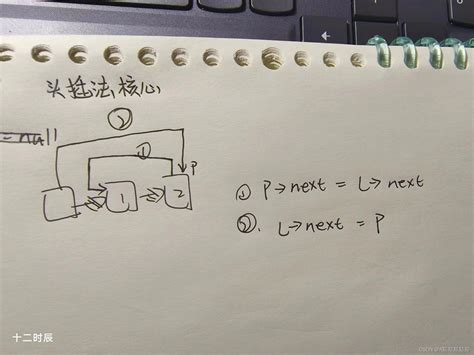 头插法核心
②
= null
①
P
1
2
① P→next = L→next
②. L→next = P
十二时辰